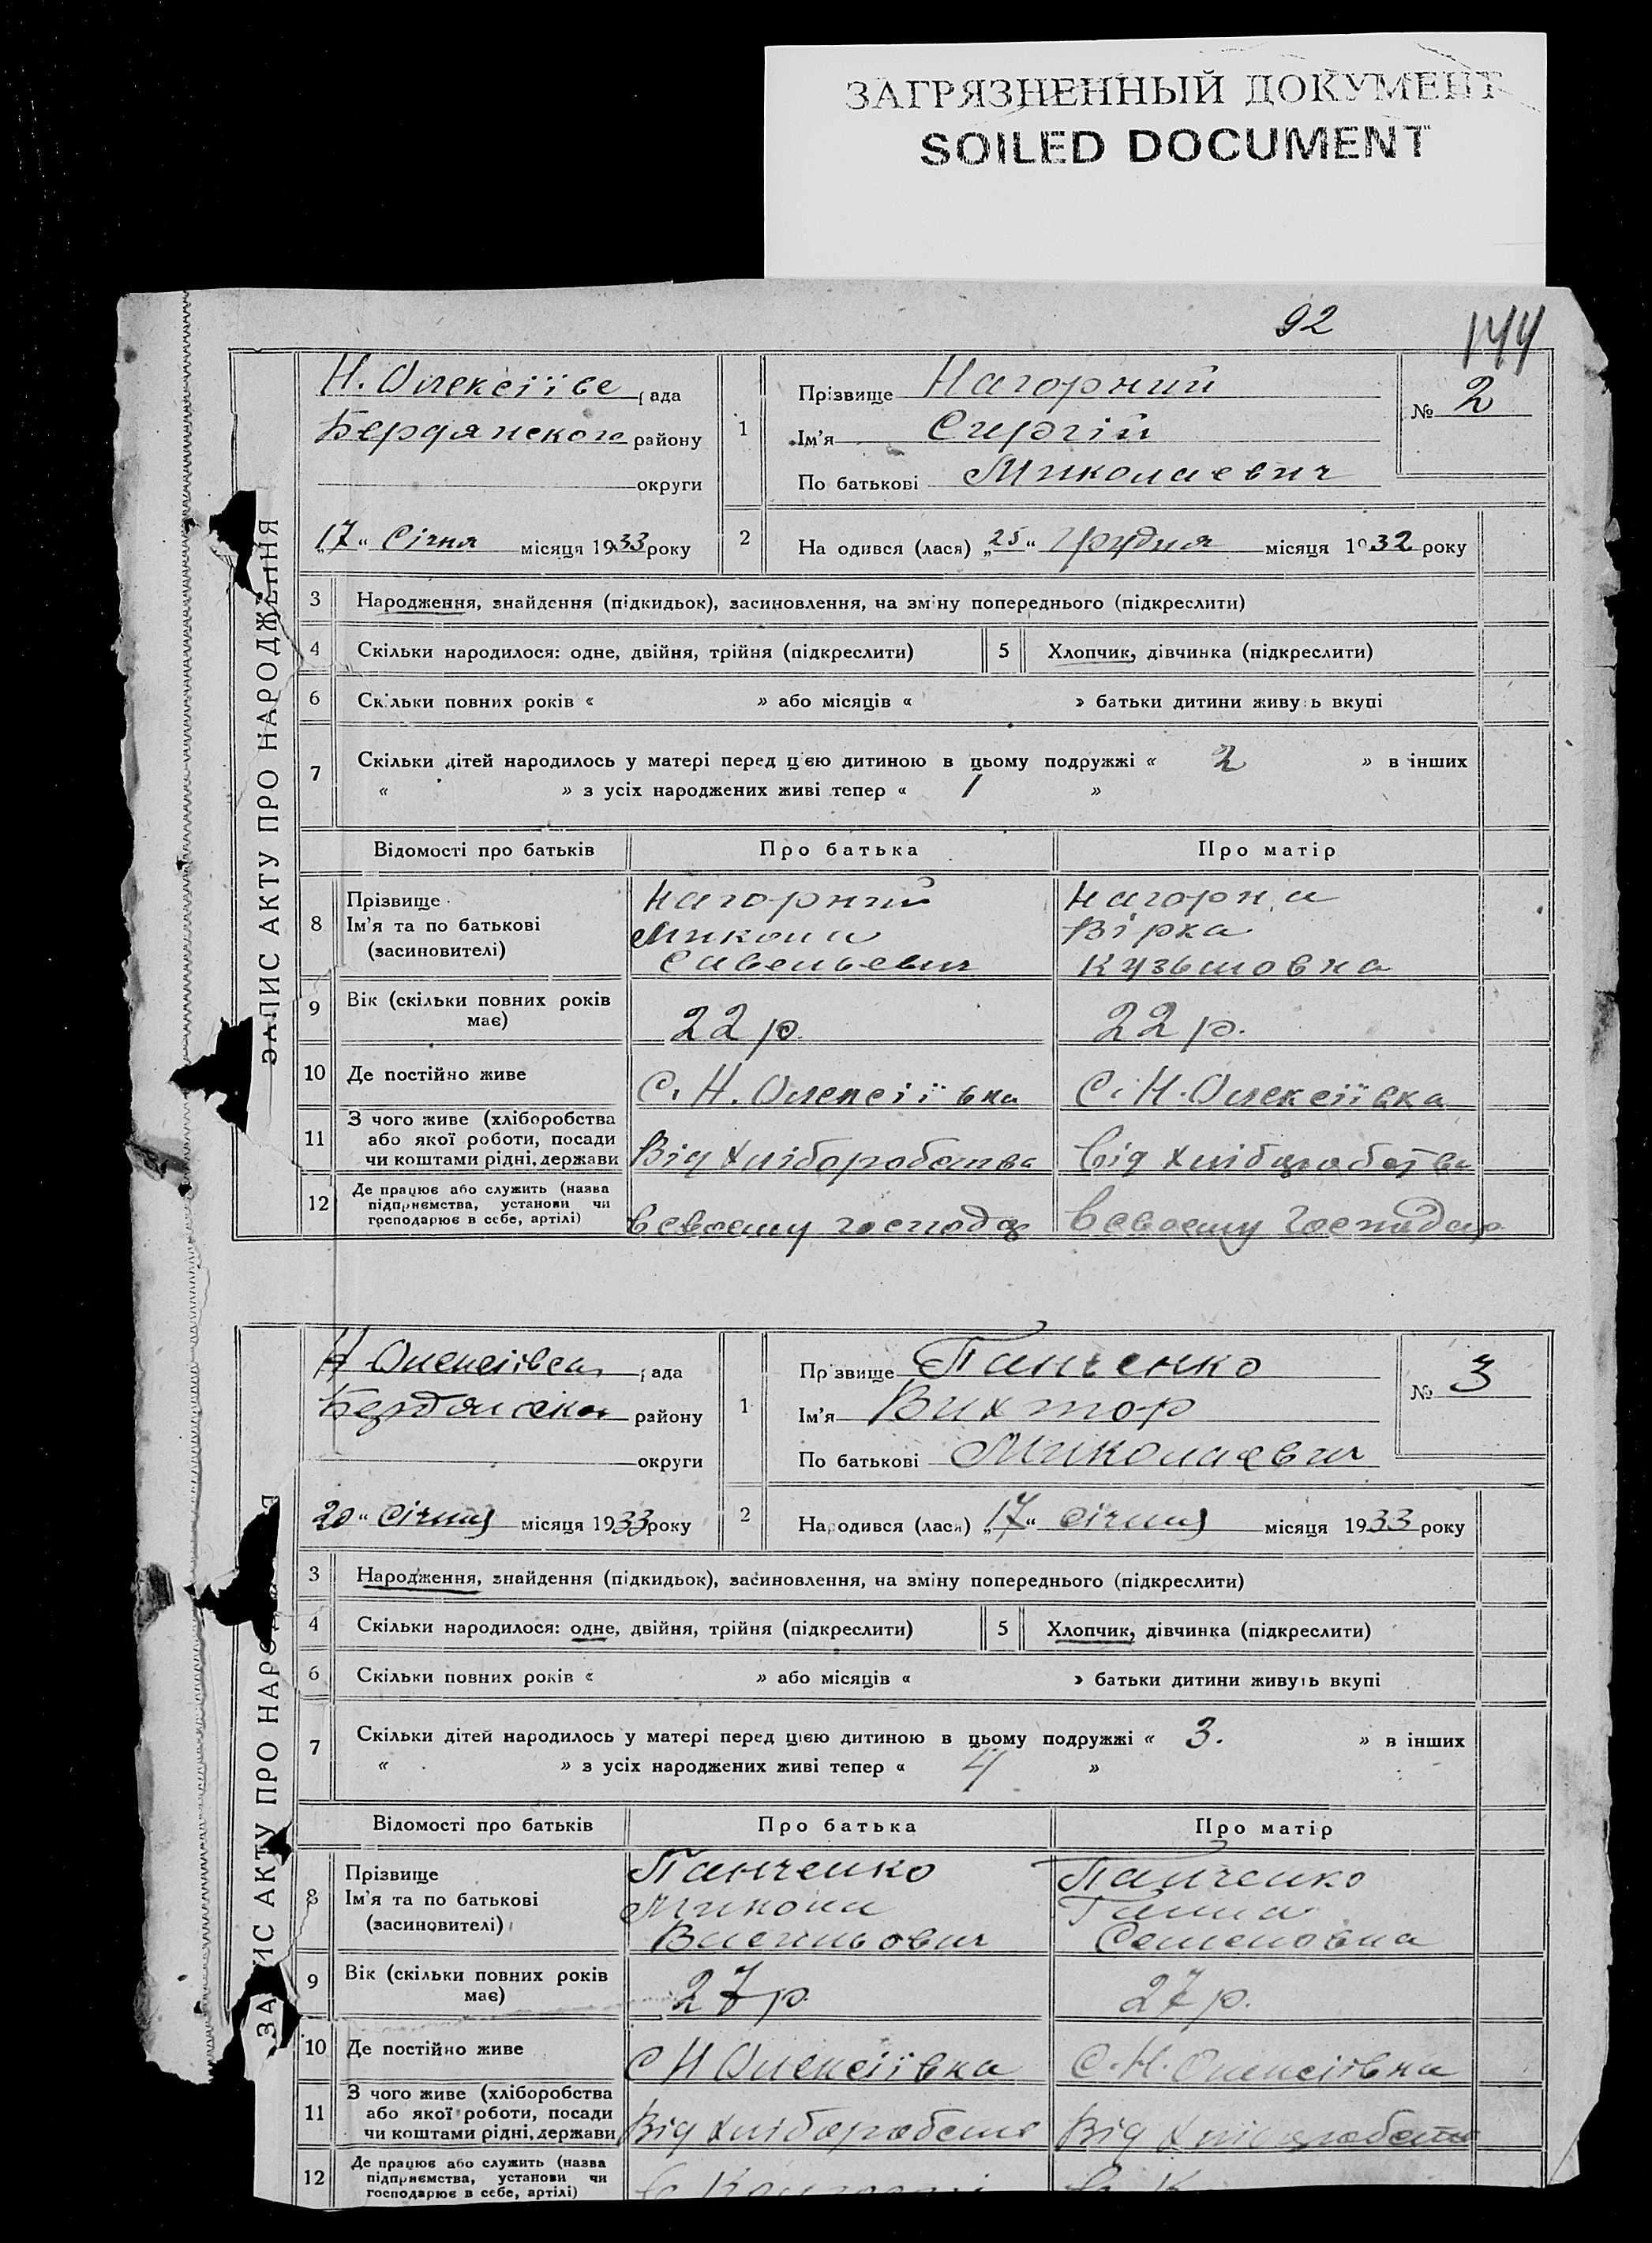 ЗАГРЯЗНЕННЫЙ ДОКУМЕНТ
SOILED DOCUMENT
92
144
ЗАПИС АКТУ ПРО НАРОДЖЕННЯ
Н. Олексіївс рада
Бердянского району
округи
„17“ Січня місяця 1933 року
1
Прізвище Нагорний
Ім'я Сиргій
По батькові Миколаевич
№ 2
2
Народився (лася) „25“ Грудня місяця 1932 року
3 Народження, знайдення (підкидьок), засиновлення, на зміну попереднього (підкреслити)
4 Скільки народилося: одне, двійня, трійня (підкреслити) 5 Хлопчик, дівчинка (підкреслити)
6 Скільки повних років « » або місяців « » батьки дитини живуть вкупі
7 Скільки дітей народилось у матері перед цією дитиною в цьому подружжі « 2 » в інших
« » з усіх народжених живі тепер « 1 »
Відомості про батьків Про батька Про матір
8 Прізвище Нагорний Нагорна
Ім'я та по батькові Микола Вірка
(засиновителі) Савельевич Кузьмовна
9 Вік (скільки повних років має) 22 р. 22 р.
10 Де постійно живе С. Н. Олексіївка С. Н. Олексіївка
11 З чого живе (хліборобства
або якої роботи, посади
чи коштами рідні, держави Від хліборобства Від хліборобства
12 Де працює або служить (назва
підприємства, установи чи
господарює в себе, артілі) в своєму господ в своєму господар
ЗАПИС АКТУ ПРО НАРОДЖЕННЯ
Н Олексіївса рада
Бердянська району
округи
20“ Січня місяця 1933 року
1
Прізвище Панченко
Ім'я Вихтор
По батькові Миколаевич
№ 3
2
Народився (лася) „17“ Січня місяця 1933 року
3 Народження, знайдення (підкидьок), засиновлення, на зміну попереднього (підкреслити)
4 Скільки народилося: одне, двійня, трійня (підкреслити) 5 Хлопчик, дівчинка (підкреслити)
6 Скільки повних років « » або місяців « » батьки дитини живуть вкупі
7 Скільки дітей народилось у матері перед цією дитиною в цьому подружжі « 3. » в інших
« » з усіх народжених живі тепер « 4 »
Відомості про батьків Про батька Про матір
8 Прізвище Панченко Панченко
Ім'я та по батькові Микола Ганна
(засиновителі) Васильович Семеновна
9 Вік (скільки повних років має) 27 р. 27 р.
10 Де постійно живе С Н Олексіївка С. Н. Олексіївка
11 З чого живе (хліборобства
або якої роботи, посади
чи коштами рідні, держави Від хліборобств Від хліборобств
12 Де працює або служить (назва
підприємства, установи чи
господарює в себе, артілі)